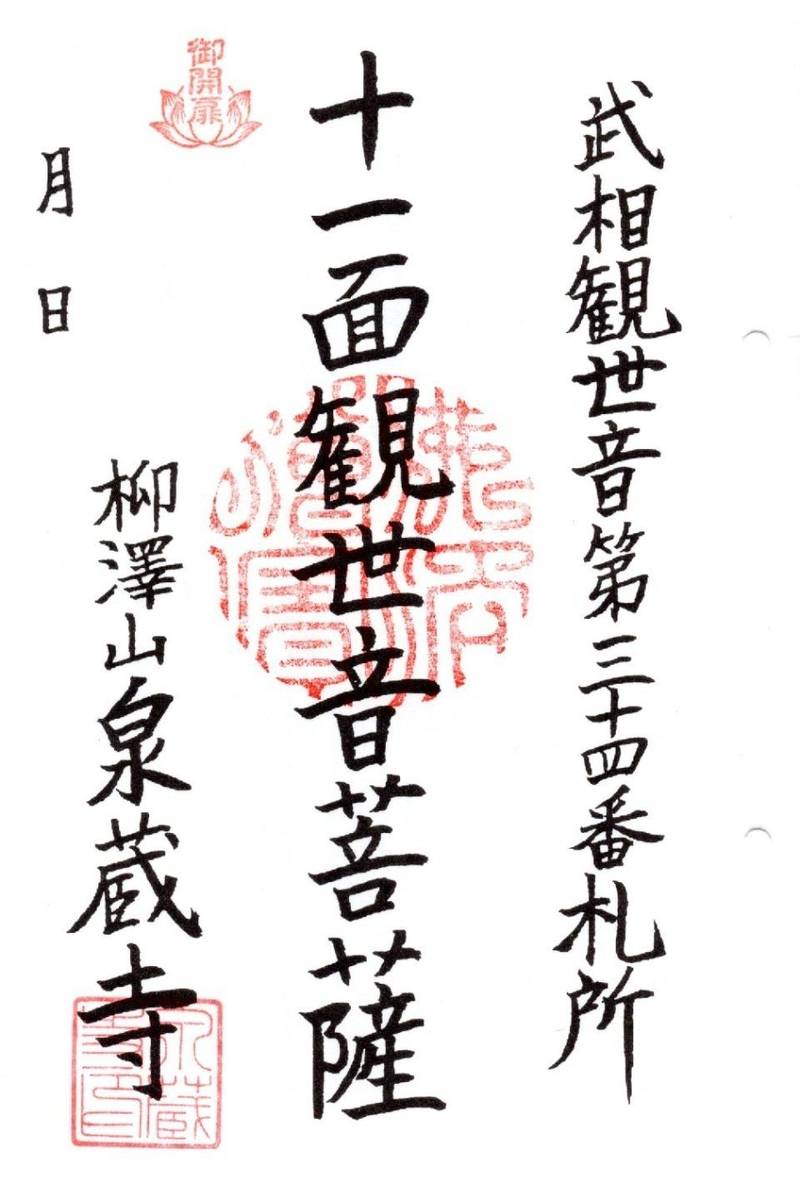 武相観世音第三十四番札所
十一面観世音菩薩
御開扉
月 日
柳澤山泉蔵寺